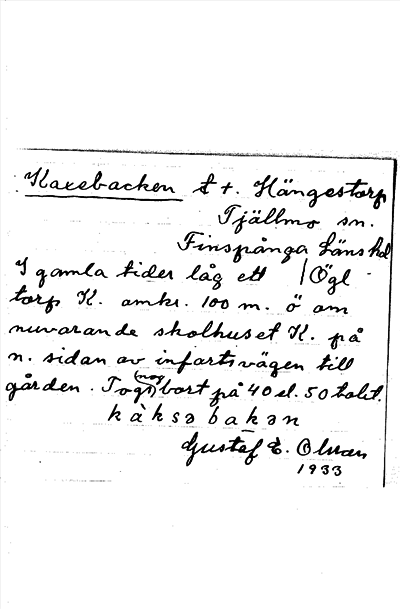 Kaxebacken t t. Hängestorp
Tjällmo sn.
Finspånga läns hd
I gamla tider låg ett / Ögl
torp K. omkr. 100 m. ö om
nuvarande skolhuset K. på
n. sidan av infartsvägen till
gården. Togs (nog) bort på 40 el. 50 talet.
kàksə bakən
Gustaf E. Olman
1933